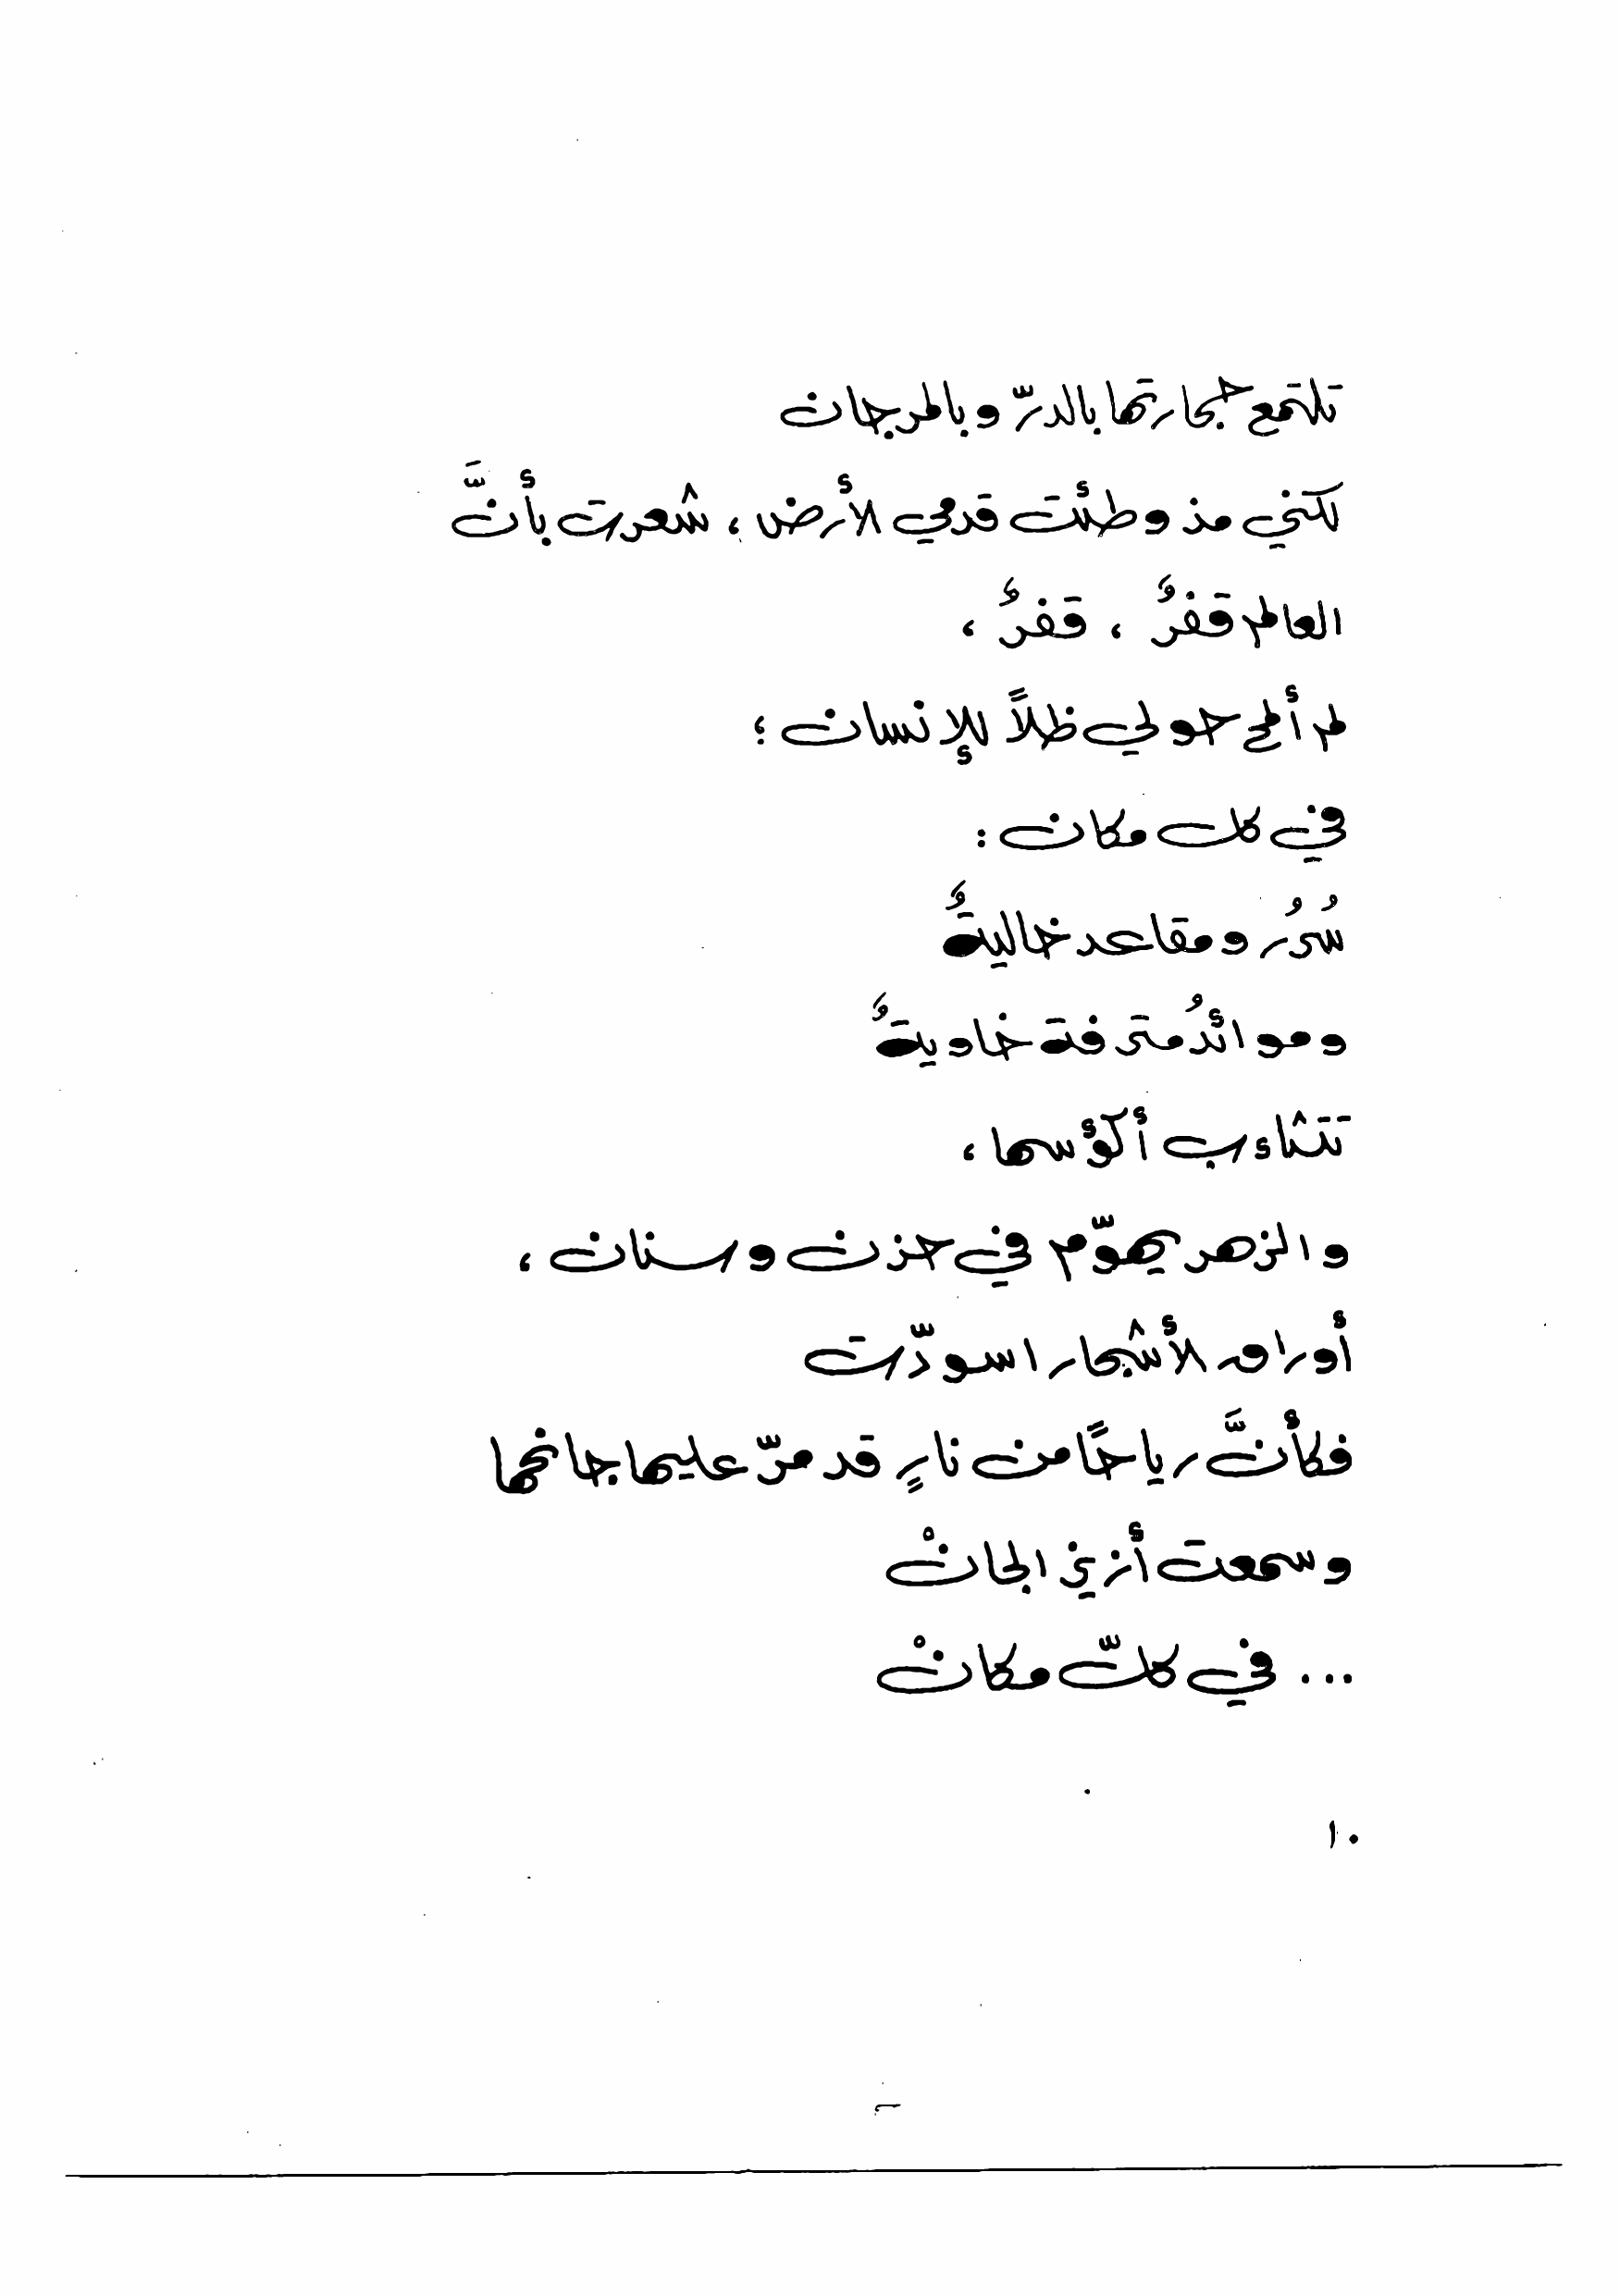 تلتمع حجارتها بالدرّ وبالمرجان
لكنني مذ وطئت قدمي الأرض، شعرت بأنَّ
العالم قفرٌ، قفرٌ،
لم ألمح حولي ظلاًّ للإنسان؛
في كل مكان:
سُرُر ومقاعد خاليةٌ
وموائدُ مترفة خاويةٌ
تتثاءب أكؤسها،
والزهر يهوّم في حزن وسنان،
أوراق الأشجار اسودّت
فكأنَّ رياحًا من نارٍ قد مرّ عليها جانحها
وسمعت أزيز الجانْ
... في كلّ مكانْ
١٠